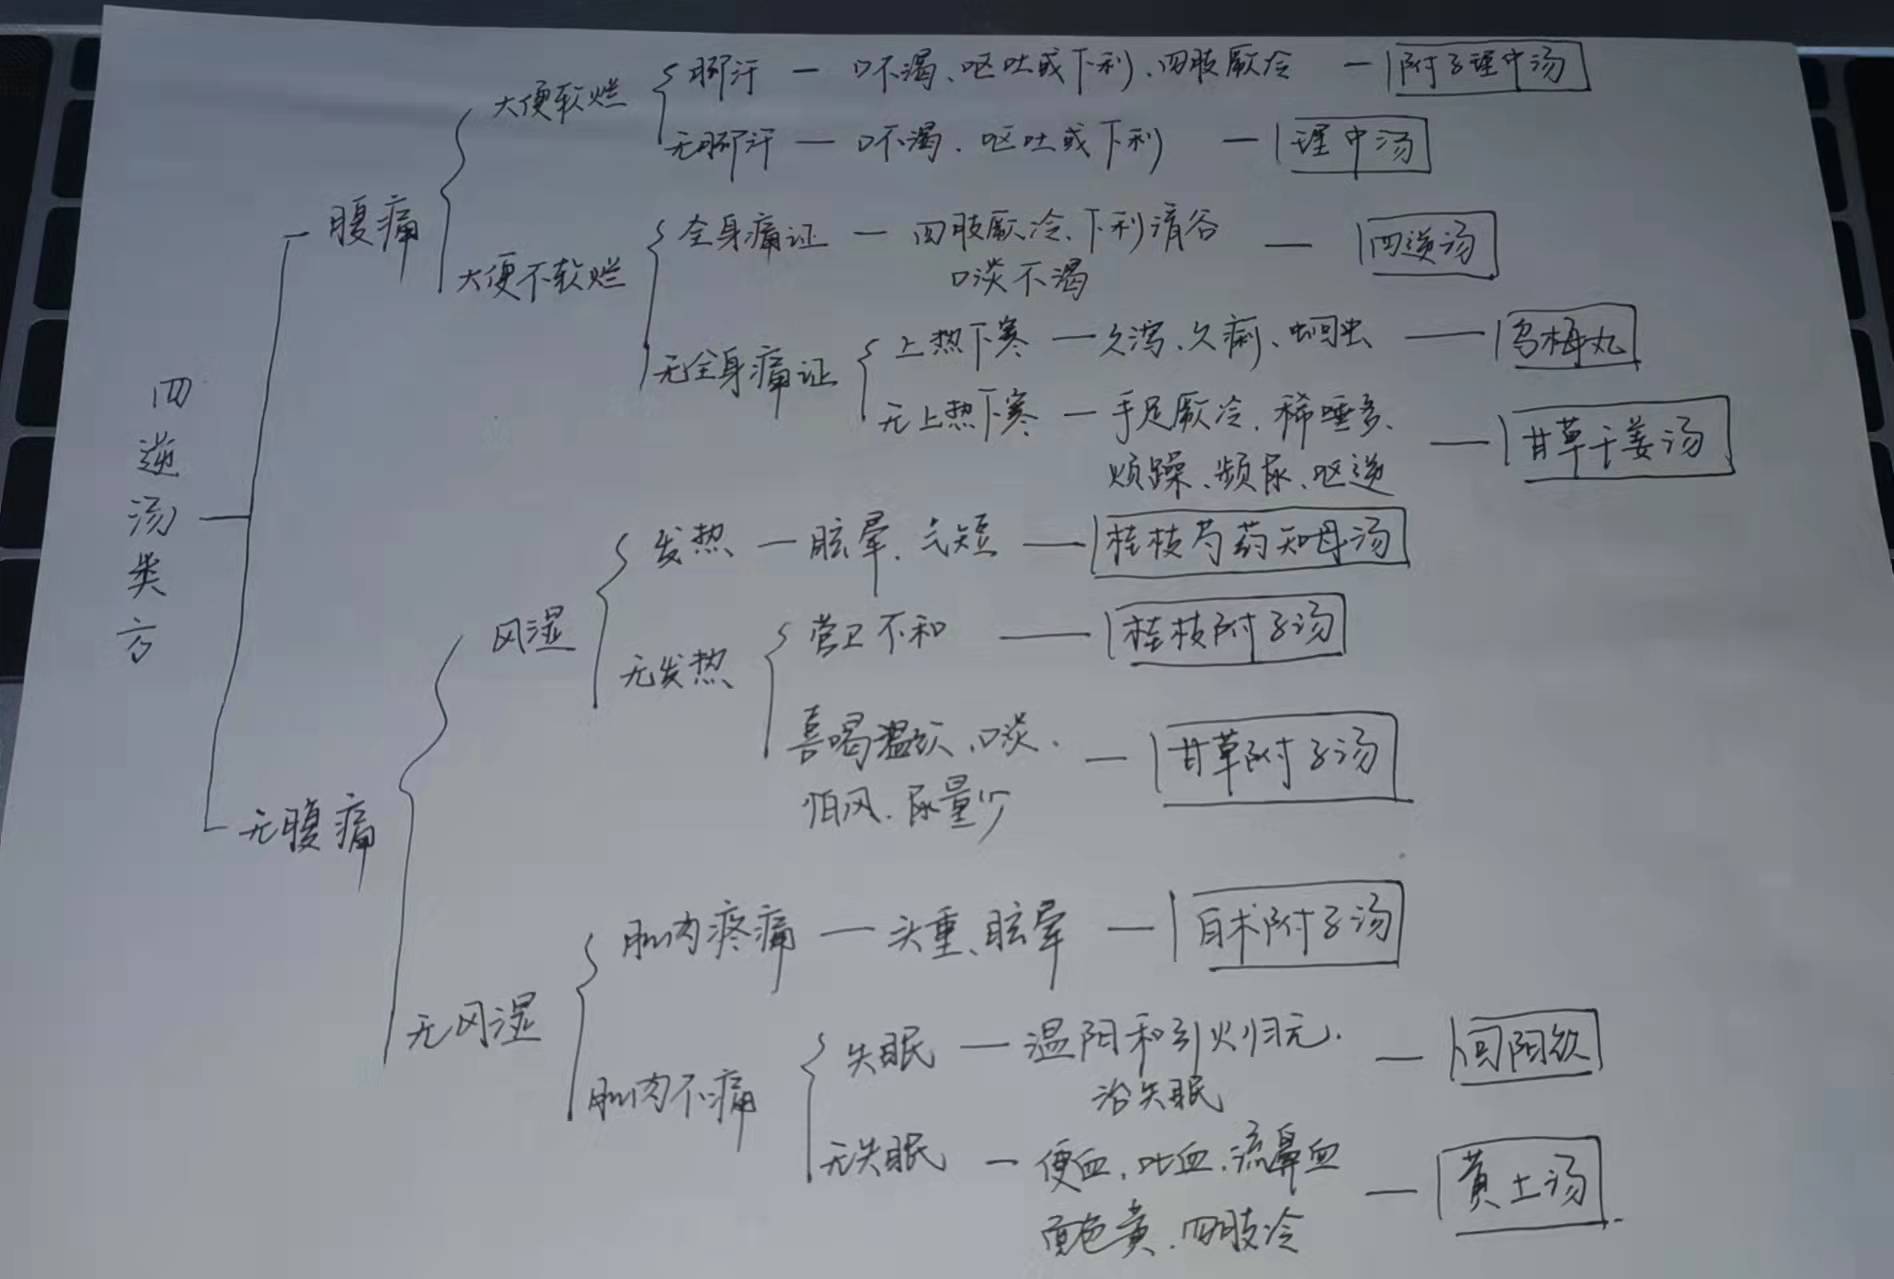 四逆汤类方
腹痛
大便软烂
脚汗 — 口不渴、呕吐或下利、四肢厥冷 — 附子理中汤
无脚汗 — 口不渴、呕吐或下利 — 理中汤
大便不软烂
全身痛证 — 四肢厥冷、下利清谷 — 四逆汤
口淡不渴
无全身痛证
上热下寒 — 久泻、久痢、蛔虫 — 乌梅丸
无上热下寒 — 手足厥冷、稀唾多、 — 甘草干姜汤
烦躁、频尿、呕逆
无腹痛
风湿
发热 — 眩晕、气短 — 桂枝芍药知母汤
无发热
营卫不和 — 桂枝附子汤
喜喝温饮、口淡、 — 甘草附子汤
怕风、尿量少
无风湿
肌肉疼痛 — 头重、眩晕 — 白术附子汤
肌肉不痛
失眠 — 温阳和引火归元、 — 回阳饮
治失眠
无失眠 — 便血、吐血、流鼻血 — 黄土汤
面色黄、四肢冷